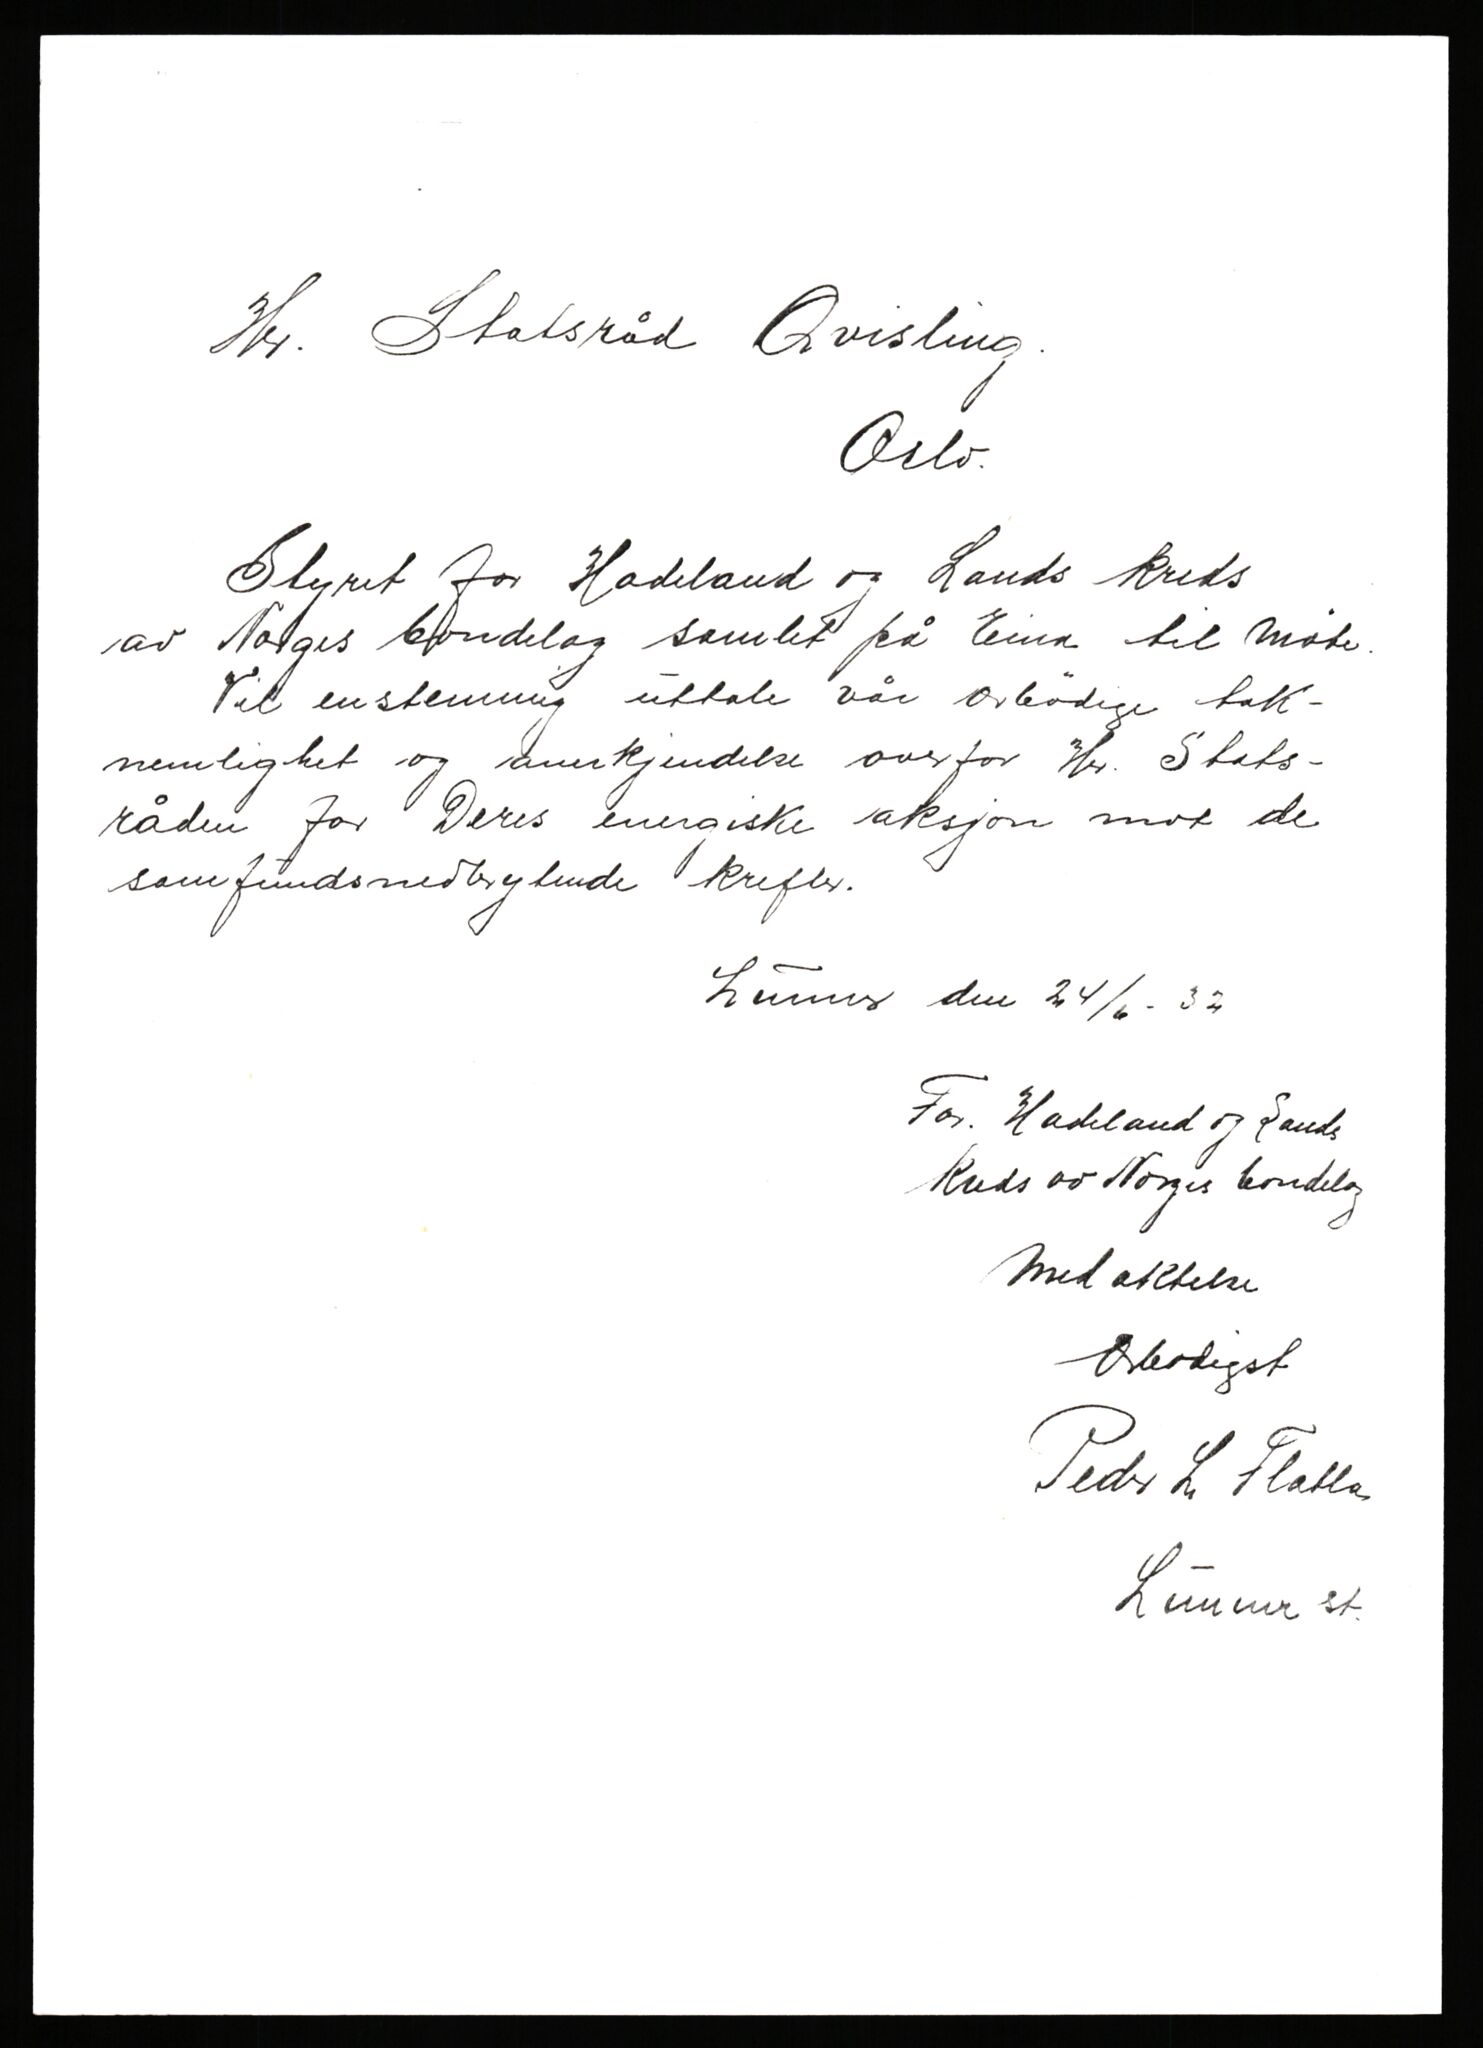 Hr. Statsråd Qvisling.
Oslo.
Styret for Hadeland og Lands kreds
av Norges bondelag samlet på Eina til møte.
Vil enstemmig uttale vår ærbødige tak-
nemlighet og anerkjendelse overfor Hr. Stats-
råden for Deres energiske aksjon mot de
samfundsnedbrytende krefter.
Lunner den 24/6 - 32
For. Hadeland og Lands
Kreds av Norges bondelag
Med aktelse
Ærbødigst
Peder L Flatla
Lunner st.